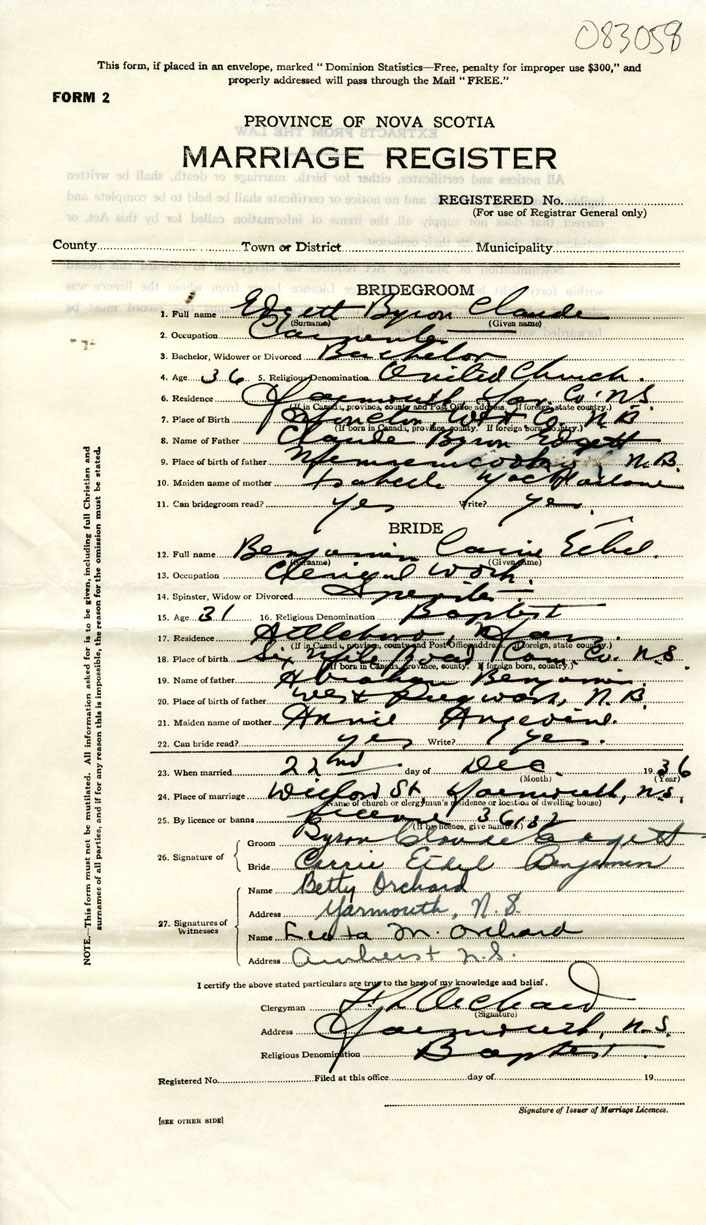 083058
This form, if placed in an envelope, marked "Dominion Statistics—Free, penalty for improper use $300," and
properly addressed will pass through the Mail "FREE."
FORM 2
PROVINCE OF NOVA SCOTIA
MARRIAGE REGISTER
REGISTERED No.
(For use of Registrar General only)
County Town or District Municipality
BRIDEGROOM
1. Full name Edgett Byron Claude
(Surname) (Given name)
2. Occupation Carpenter
3. Bachelor, Widower or Divorced Bachelor
4. Age 36 5. Religious Denomination United Church.
6. Residence Yarmouth, Yar. Co. N.S.
(If in Canada, province, county and Post Office address. If foreign, state country.)
7. Place of Birth Moncton West. Co. N.B.
(If born in Canada, province, county. If foreign born, country.)
8. Name of Father Claude Byron Edgett
9. Place of birth of father N.B.
10. Maiden name of mother Isabelle MacFarlane
11. Can bridegroom read? yes Write? yes.
BRIDE
12. Full name Benjamin Carrie Ethel.
(Surname) (Given name)
13. Occupation Clerical work.
14. Spinster, Widow or Divorced Spinster
15. Age 31 16. Religious Denomination Baptist
17. Residence Attleboro, Mass.
(If in Canada, province, county and Post Office address. If foreign, state country.)
18. Place of birth Six Mile Road Cum. Co. N.S.
(If born in Canada, province, county. If foreign born, country.)
19. Name of father Abraham Benjamin
20. Place of father West Pugwash, N.B.
21. Maiden name of mother Annie Angevine.
22. Can bride read? yes Write? yes.
23. When married 22nd day of Dec. 1936
(Month) (Year)
24. Place of marriage St, Yarmouth, N.S.
(Name of church or clergyman's residence or location of dwelling house)
25. By licence or banns License 36132
(If by licence, give number)
26. Signature of
Groom Byron Claude Edgett
Bride Carrie Ethel Benjamin
27. Signatures of Witnesses
Name Betty Orchard
Address Yarmouth, N.S.
Name Leota M. Orchard
Address Amherst N.S.
I certify the above stated particulars are true to the best of my knowledge and belief.
Clergyman Orchard
(Signature)
Address Yarmouth, N.S.
Religious Denomination Baptist.
Registered No. Filed at this office day of 19
Signature of Issuer of Marriage Licences.
[SEE OTHER SIDE]
NOTE.—This form must not be mutilated. All information asked for is to be given, including full Christian and
surnames of all parties, and if for any reason this is impossible, the reason for the omission must be stated.